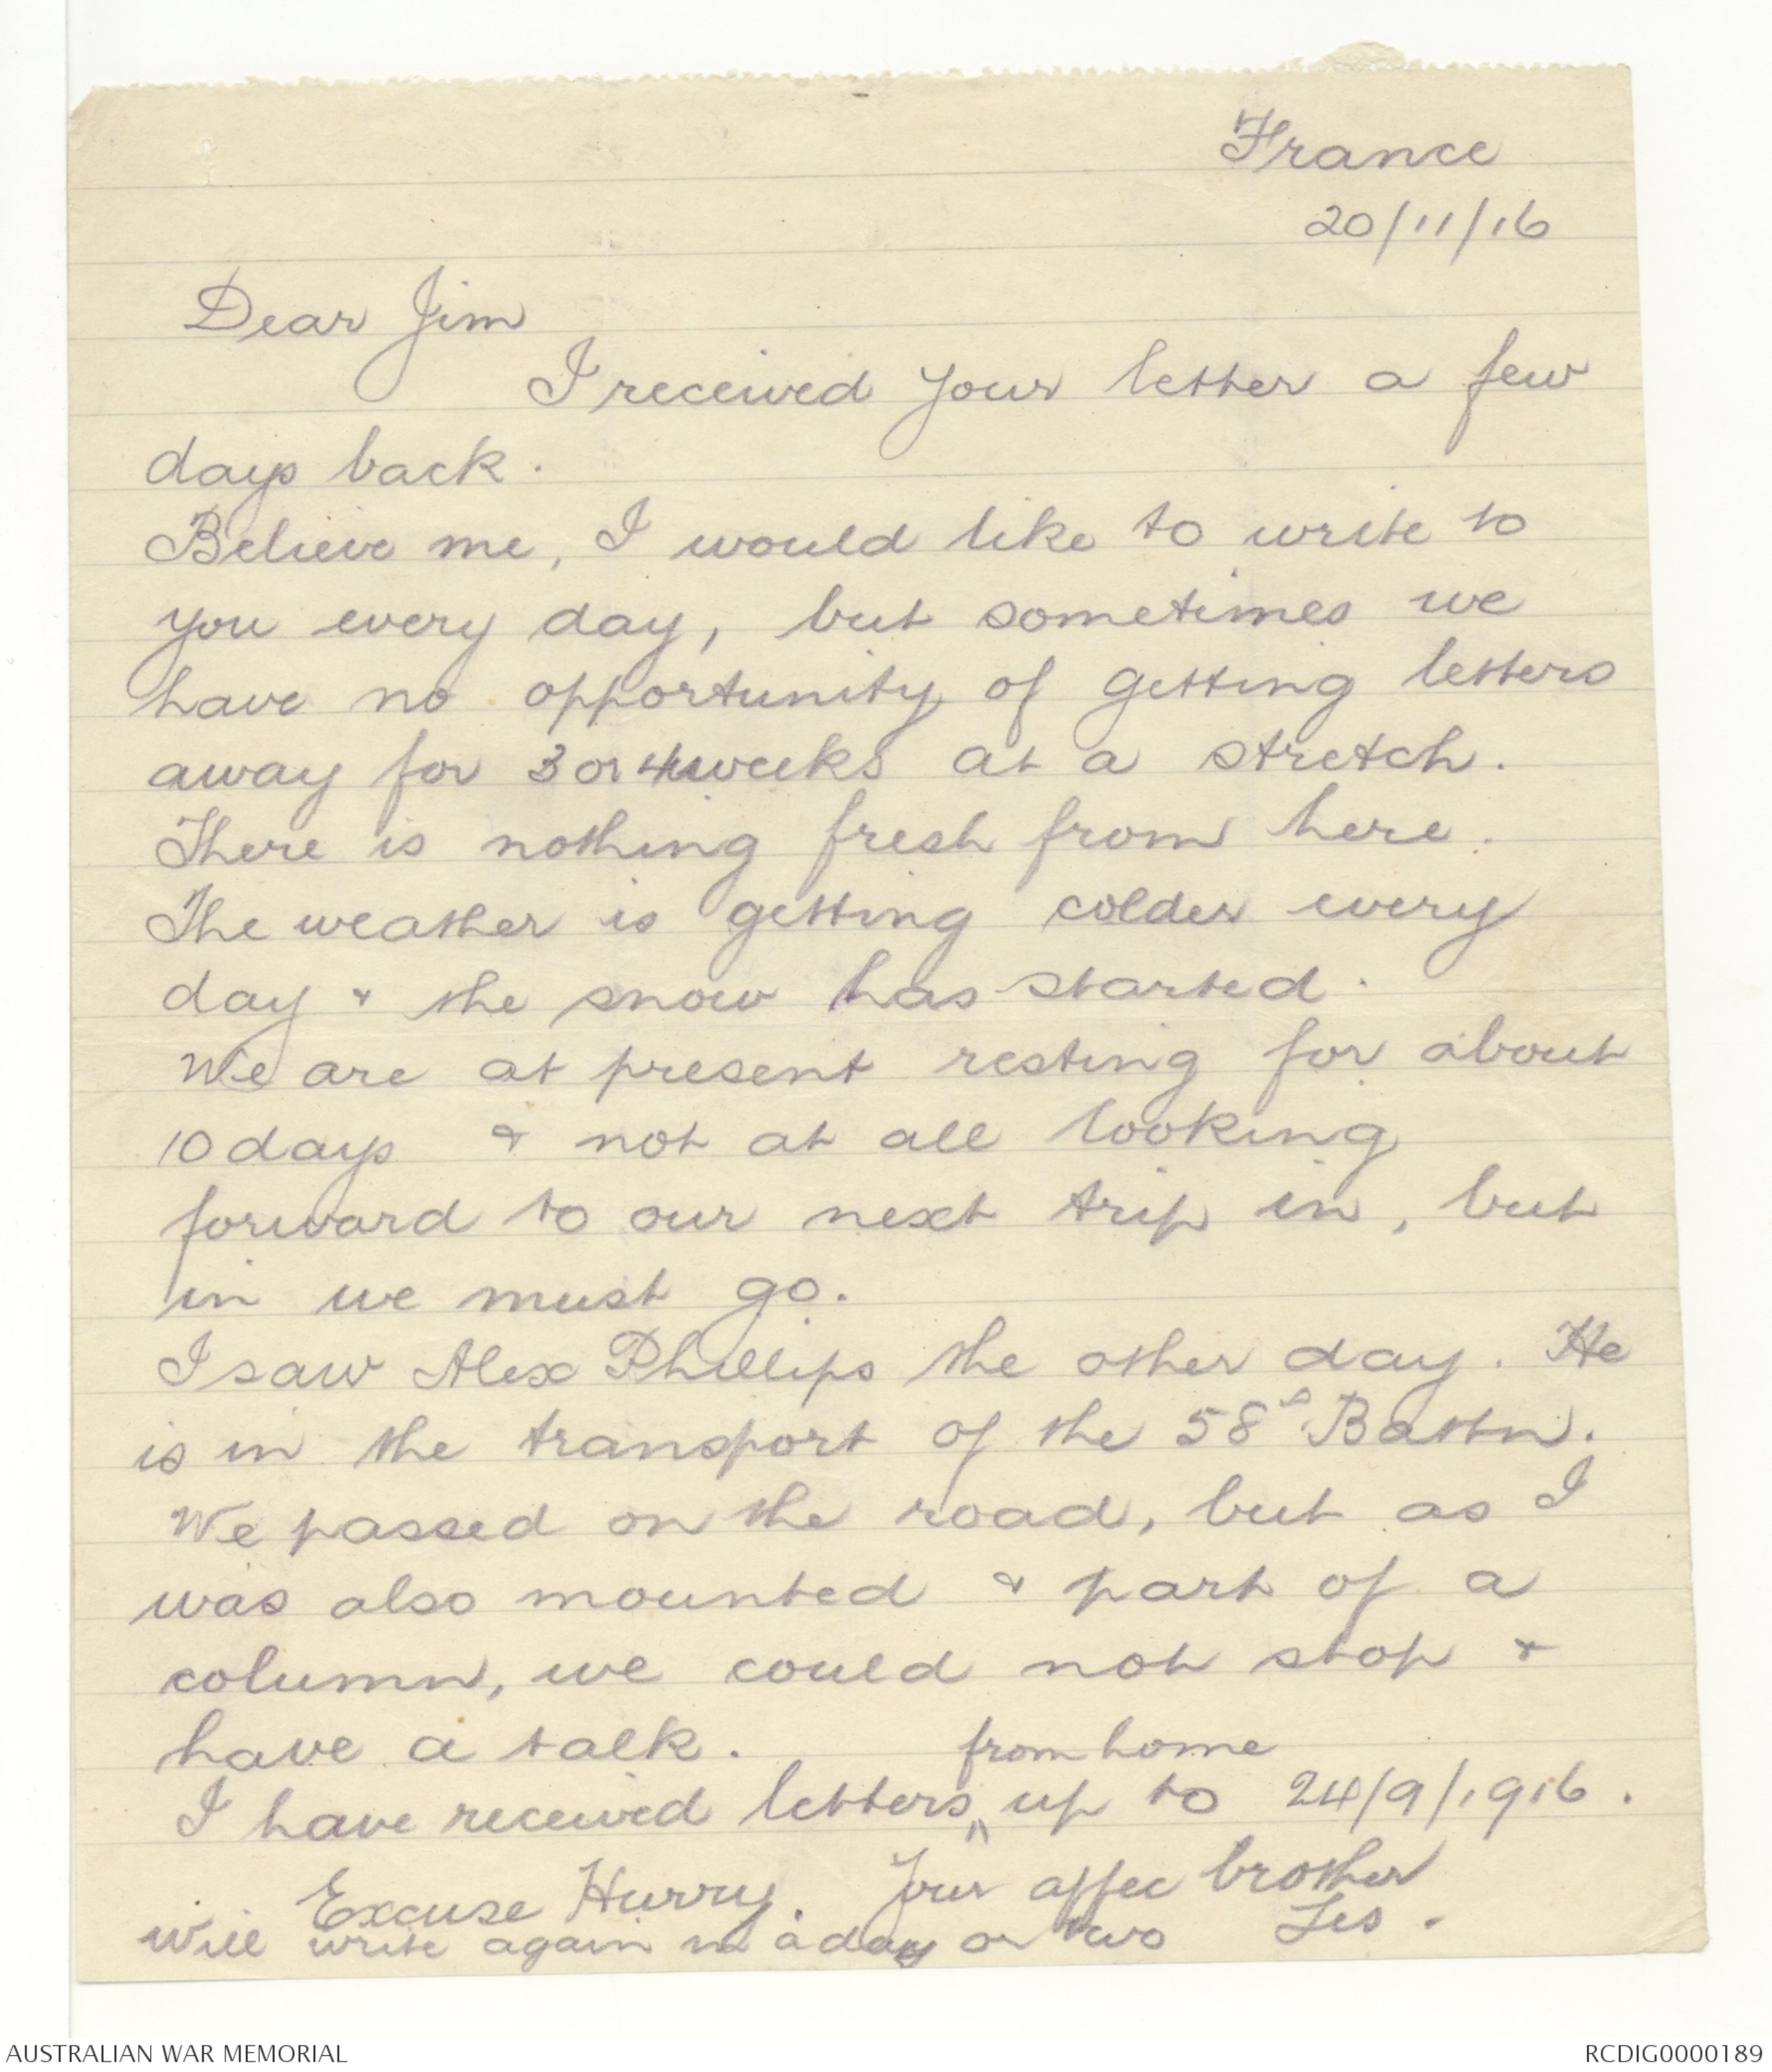 France
20/11/16
Dear Jim
I received your letter a few
days back.
Believe me, I would like to write to
you every day, but sometimes we
have no opportunity of getting letters
away for 3 or 4 weeks at a stretch.
There is nothing fresh from here.
The weather is getting colder every
day & the snow has started.
We are at present resting for about
10 days & not at all looking
forward to our next trip in, but
in we must go.
I saw Alex Phillips the other day. He
is in the transport of the 58th Battn.
We passed on the road, but as I
was also mounted & part of a
column, we could not stop &
have a talk.
from home
I have received letters up to 24/9/1916.
Excuse Hurry. Your affec brother
Les.
Will write again in a day or two
AUSTRALIAN WAR MEMORIAL
RCDIG0000189